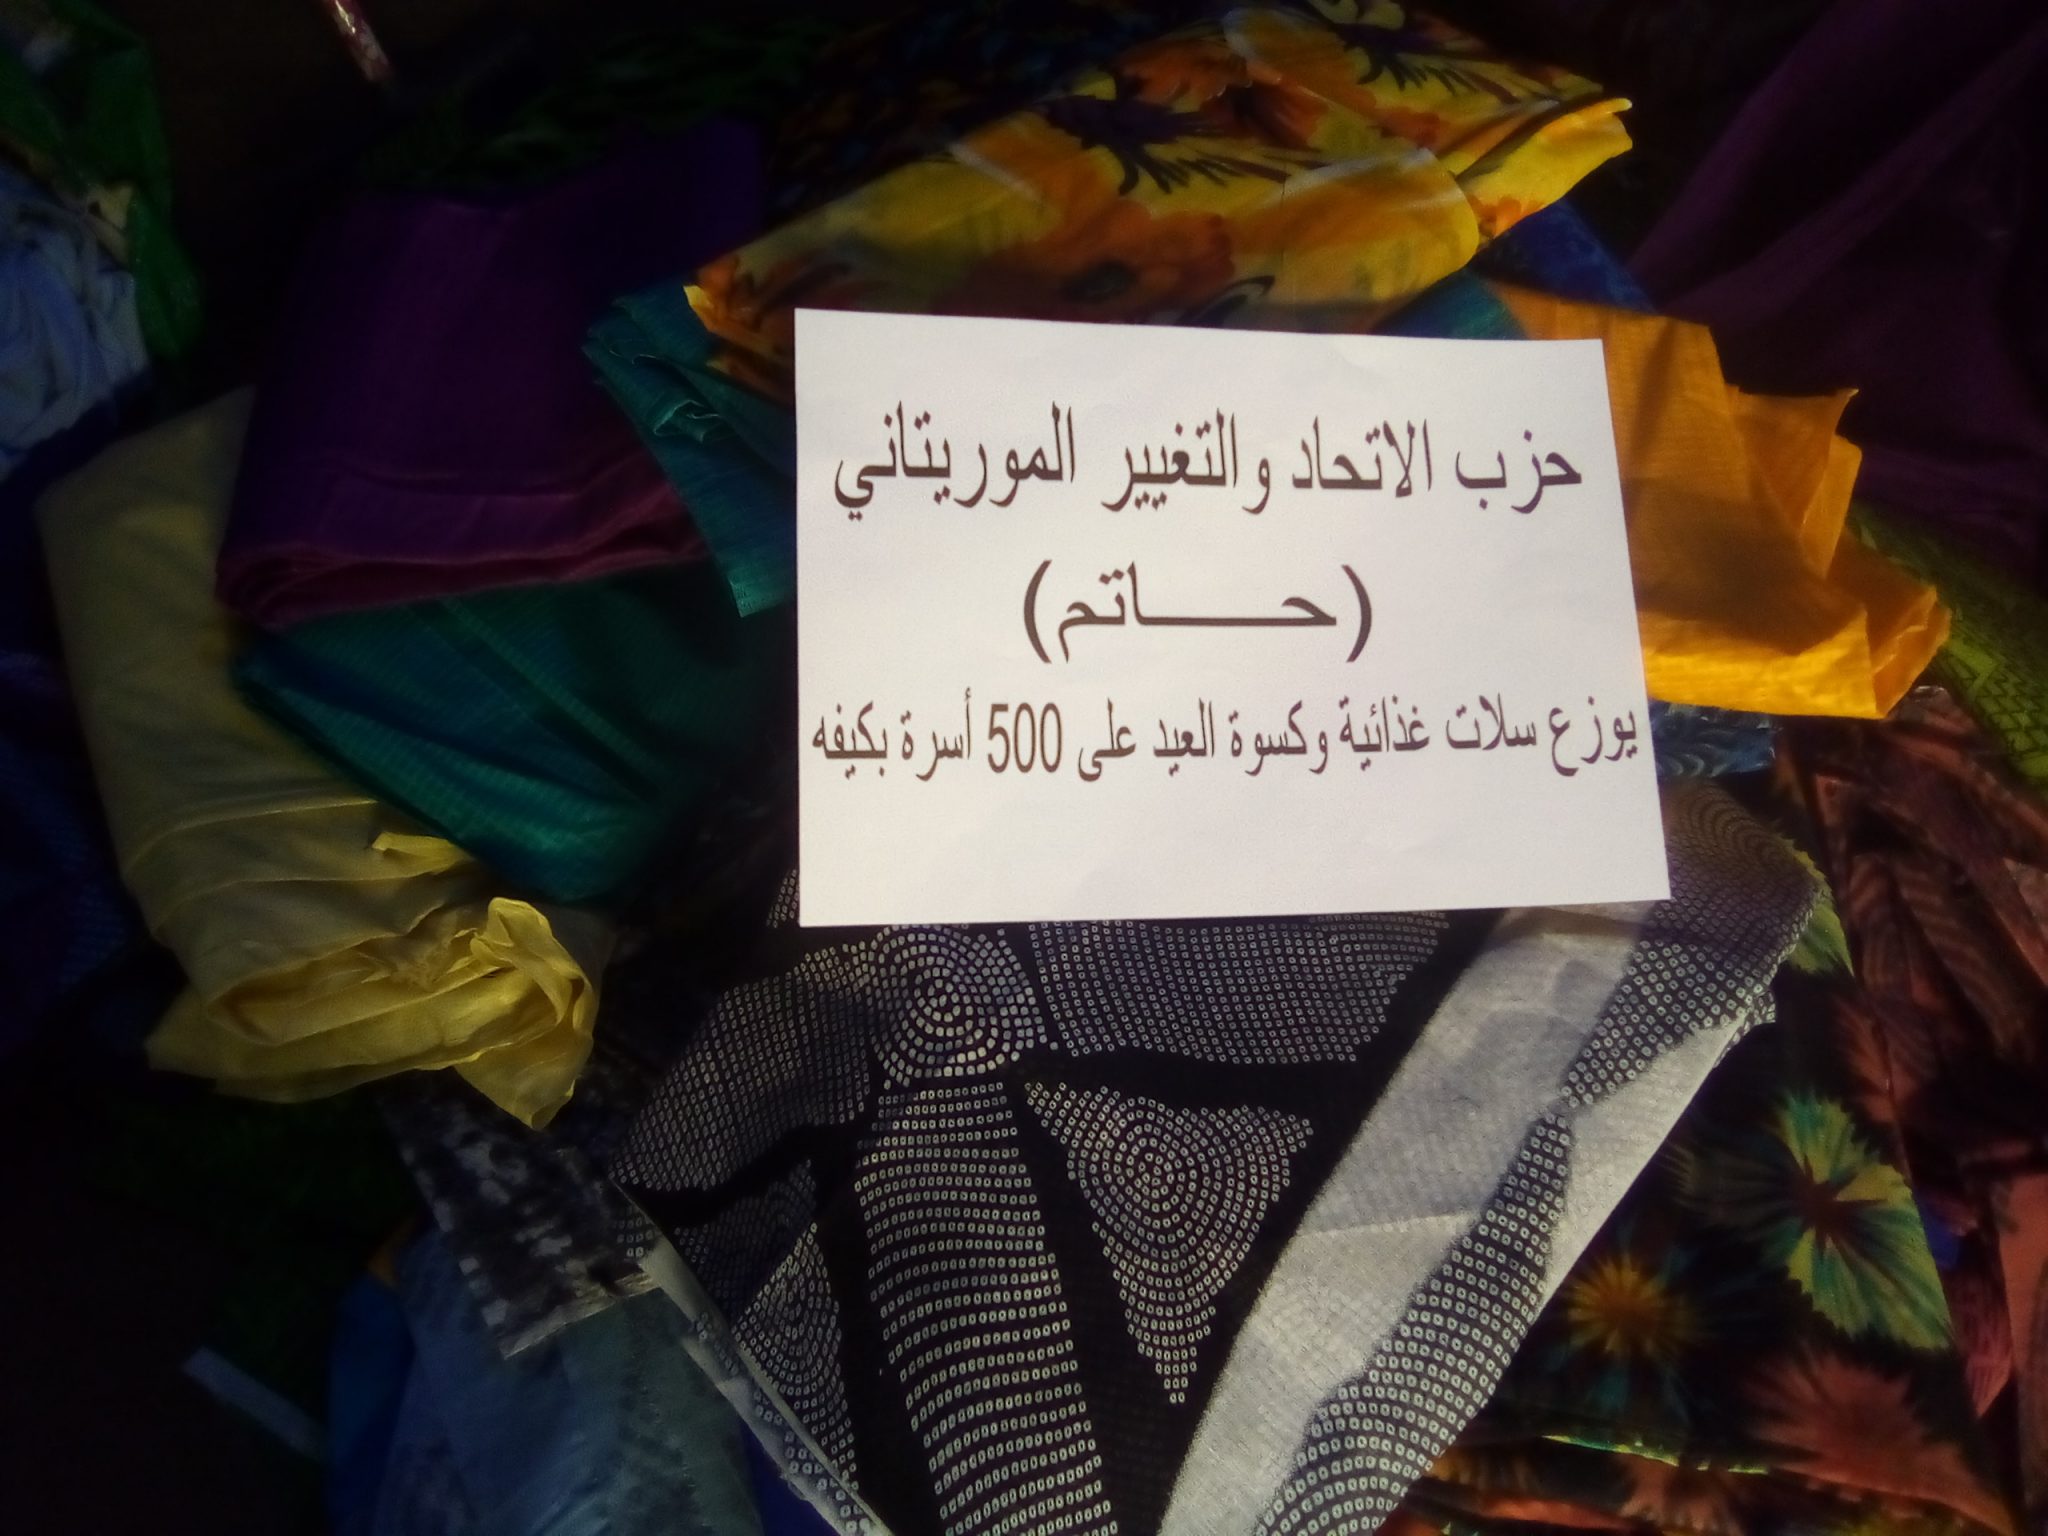 حزب الاتحاد والتغيير الموريتاني
(حـــــاتم)
يوزع سلات غذائية وكسوة العيد على 500 أسرة بكيفه